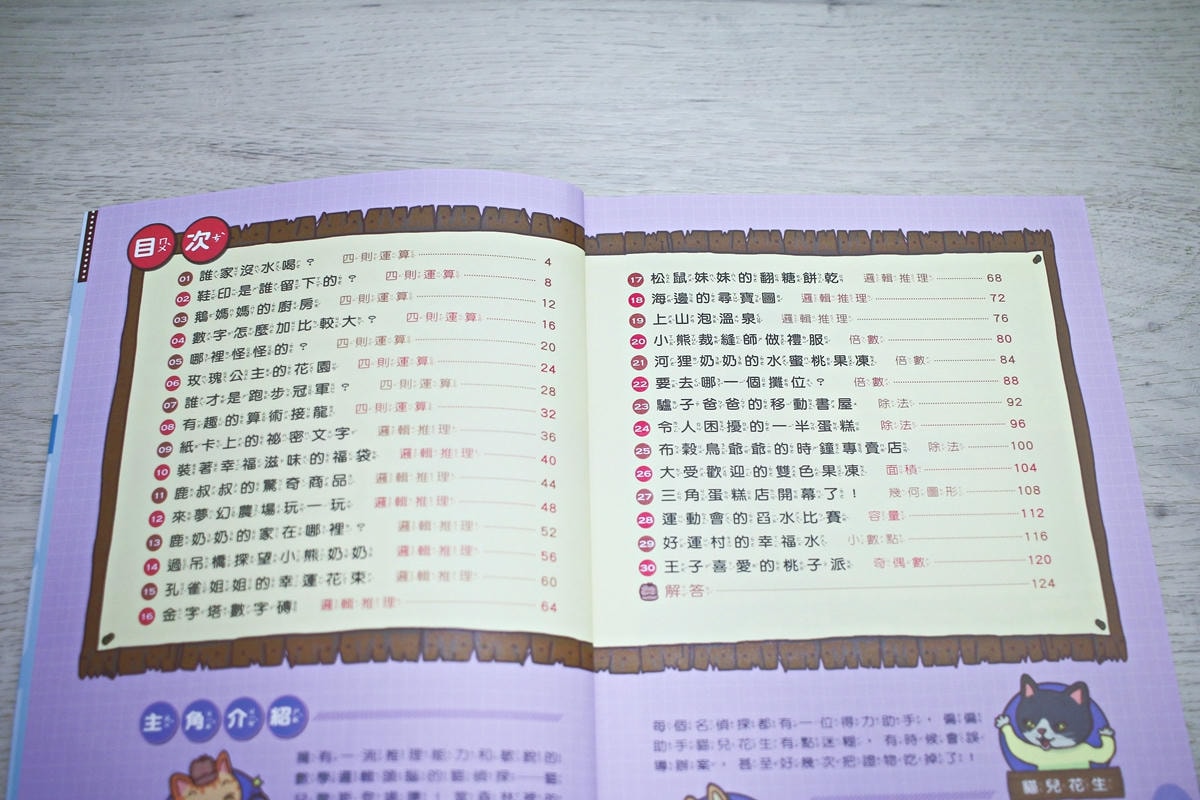 目次
01 誰家沒水喝？ 四則運算 4
02 鞋印是誰留下的？ 四則運算 8
03 鵝媽媽的廚房 四則運算 12
04 數字怎麼加比較大？ 四則運算 16
05 哪裡怪怪的？ 四則運算 20
06 玫瑰公主的花園 四則運算 24
07 誰才是跑步冠軍？ 四則運算 28
08 有趣的算術接龍 四則運算 32
09 紙卡上的祕密文字 邏輯推理 36
10 裝著幸福滋味的福袋 邏輯推理 40
11 鹿叔叔的驚奇商品 邏輯推理 44
12 來夢幻農場玩一玩 邏輯推理 48
13 鹿奶奶的家在哪裡？ 邏輯推理 52
14 過吊橋探望小熊奶奶 邏輯推理 56
15 孔雀姐姐的幸運花束 邏輯推理 60
16 金字塔數字磚 邏輯推理 64
17 松鼠妹妹的翻糖餅乾 邏輯推理 68
18 海邊的尋寶圖 邏輯推理 72
19 上山泡溫泉 邏輯推理 76
20 小熊裁縫師做禮服 倍數 80
21 河狸奶奶的水蜜桃果凍 倍數 84
22 要去哪一個攤位？ 倍數 88
23 驢子爸爸的移動書屋 除法 92
24 令人困擾的一半蛋糕 除法 96
25 布穀鳥爺爺的時鐘專賣店 除法 100
26 大受歡迎的雙色果凍 面積 104
27 三角蛋糕店開幕了！ 幾何圖形 108
28 運動會的舀水比賽 容量 112
29 好運村的幸福水 小數點 116
30 王子喜愛的桃子派 奇偶數 120
解答 124
主角介紹
擁有一流推理能力和敏銳的
數學邏輯頭腦的貓偵探——貓
每個名偵探都有一位得力助手，偏偏
助手貓兒花生有點迷糊，有時候會誤
導辦案，甚至好幾次把證物吃掉了！
貓兒花生